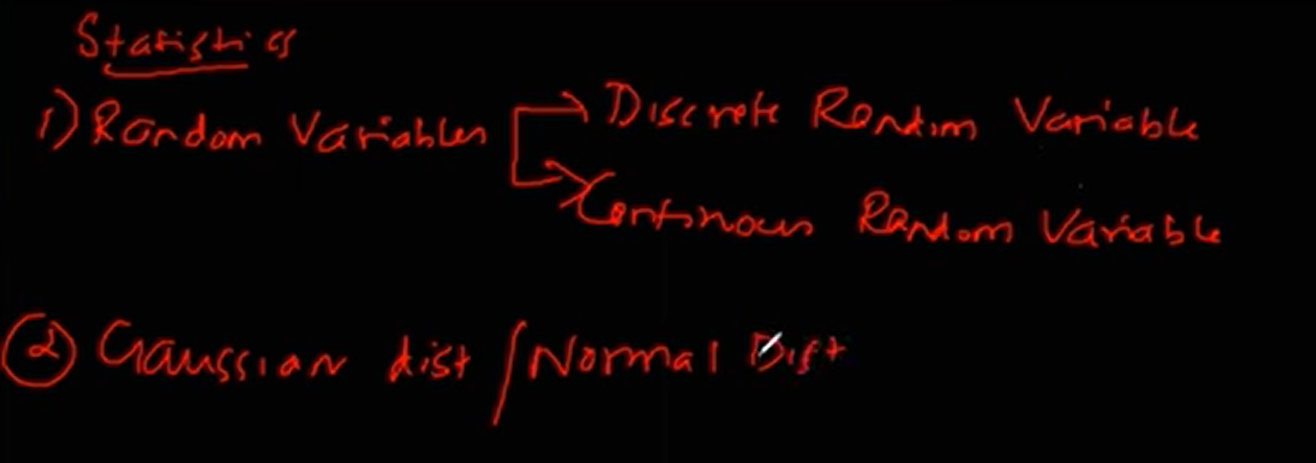 Statistics
1) Random Variables → Discrete Random Variable
→ Continous Random Variable
② Gaussian dist / Normal Dist